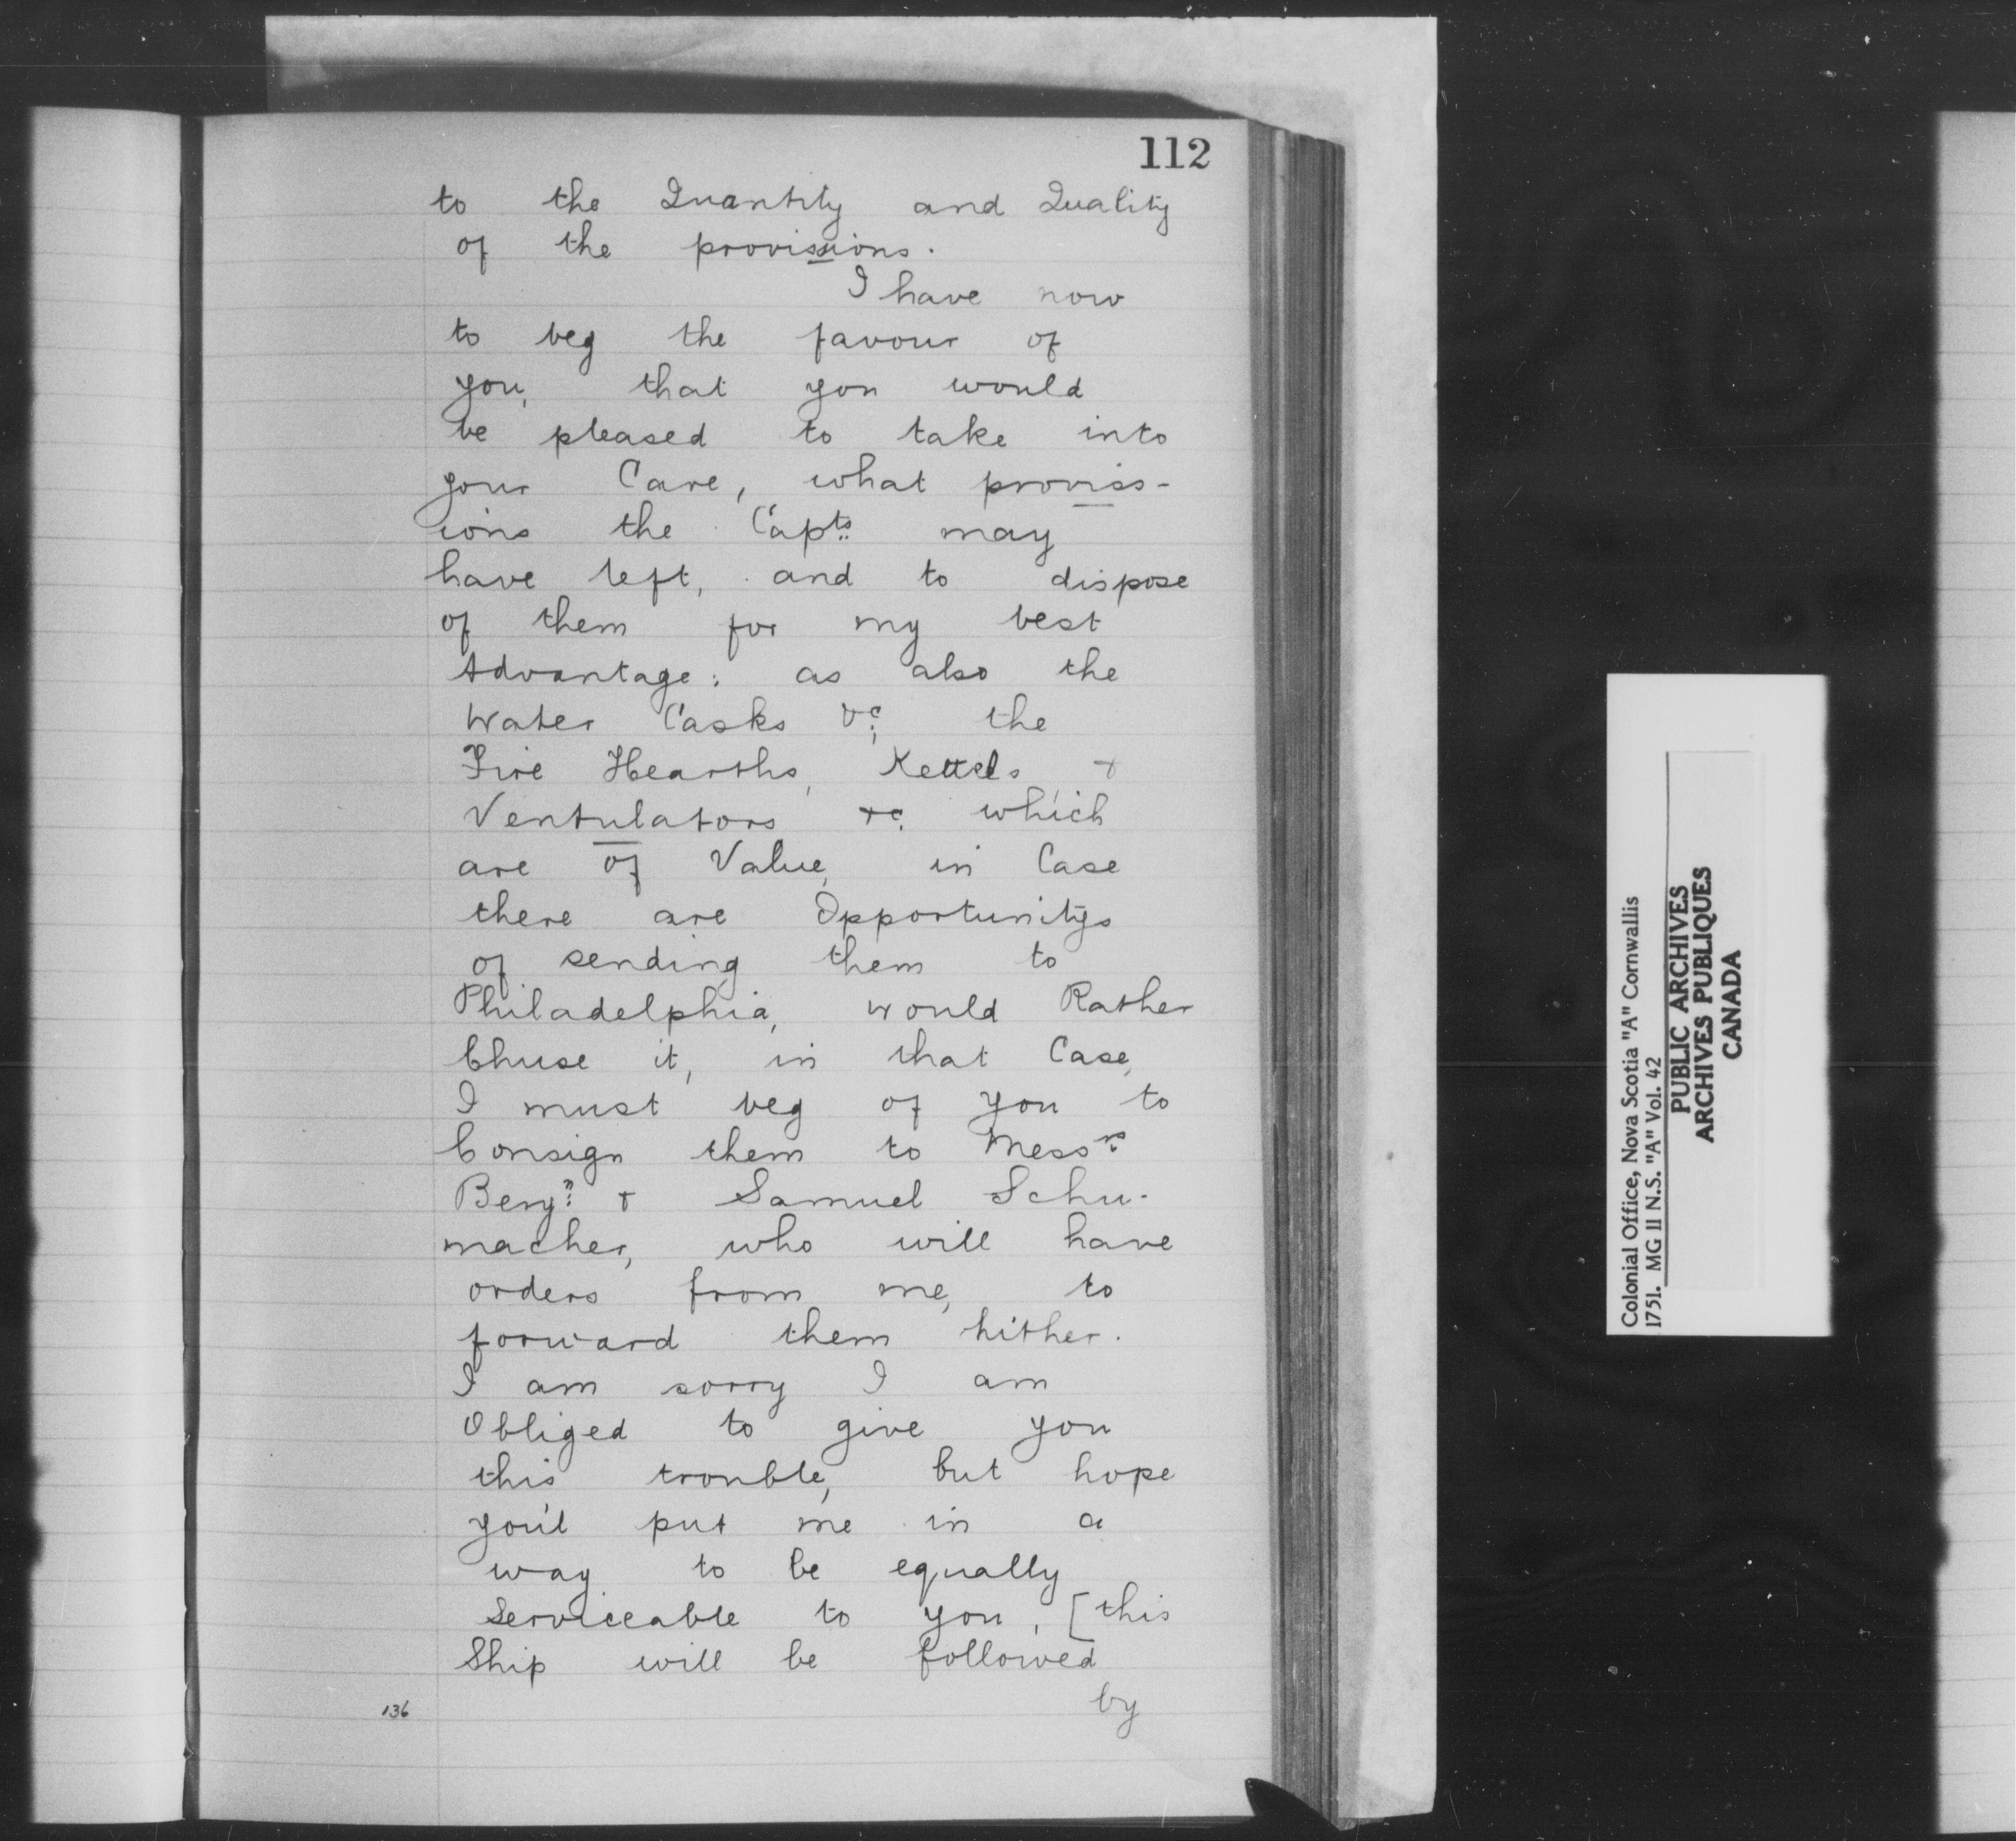 112
to the Quantity and Quality
of the provissions.
I have now
to beg the favour of
you, that you would
be pleased to take into
your Care, what proviss-
ions the Capts. may
have left, and to dispose
of them for my best
Advantage; as also the
Water Casks &c; the
Fire Hearths, Kettels, &
Ventulators &c. which
are of Value, in Case
there are Opportunitys
of sending them to
Philadelphia, would Rather
Chuse it, in that Case,
I must beg of you to
Consign them to Messrs.
Benjn. & Samuel Schu-
macher, who will have
orders from me, to
forward them hither.
I am sorry I am
Obliged to give you
this trouble, but hope
you'l put me in a
way to be equally
Serviceable to you, [this
Ship will be followed
by
136
Colonial Office, Nova Scotia "A" Cornwallis
1751. MG II N.S. "A" Vol. 42
PUBLIC ARCHIVES
ARCHIVES PUBLIQUES
CANADA